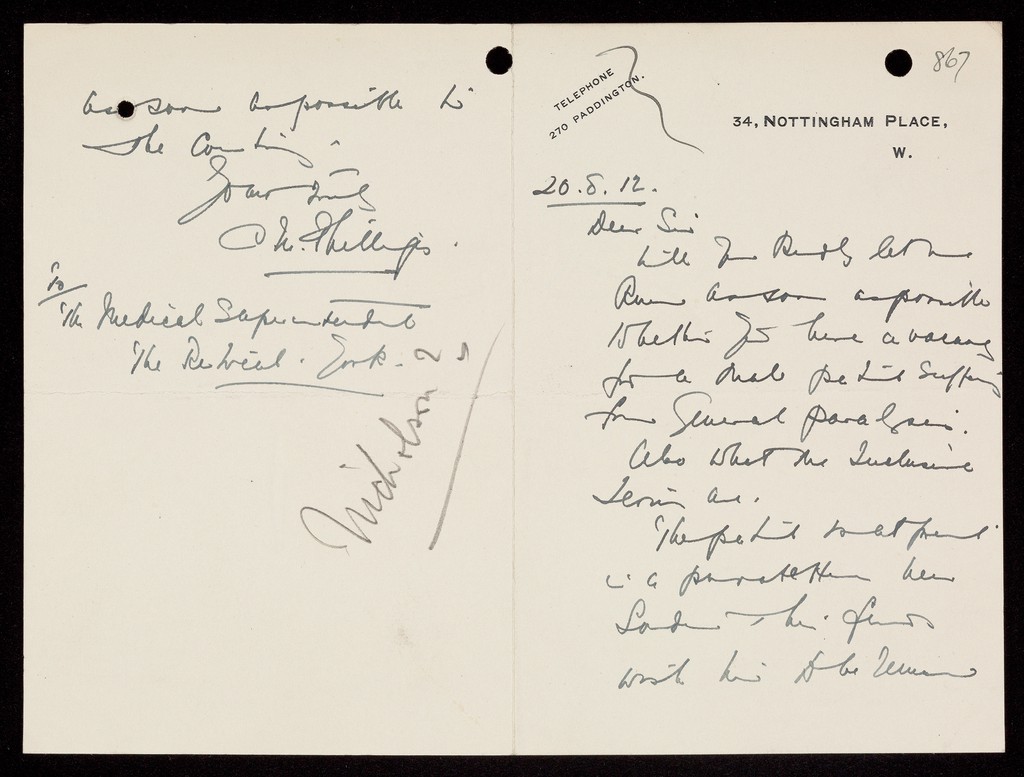 867
TELEPHONE
270 PADDINGTON.
34, NOTTINGHAM PLACE,
W.
20.8.12.
Dear Sir
Will you kindly let me
know as soon as possible
whether you have a vacancy
for a male patient suffering
from General paralysis.
Also what the Inclusive
Terms are.
The patient is at present
in a private Home near
London & his friends
wish him to be removed
as soon as possible to
the Country.
Yours truly
Phillips.
To
The Medical Superintendent
The Retreat. York.
Nicholson ?